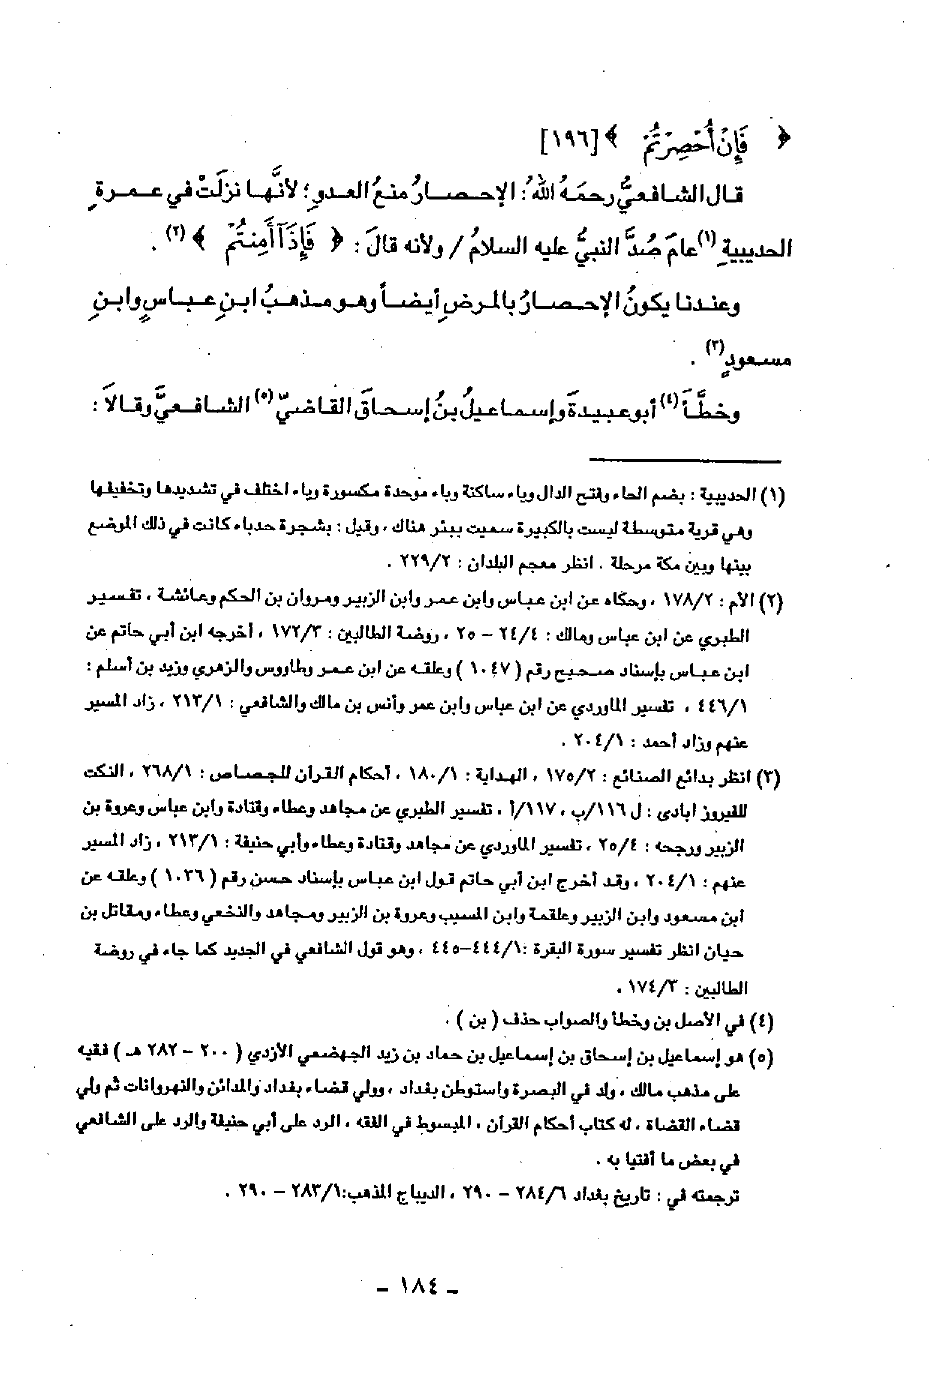 ﴿ فَإِنْ أُحْصِرْتُمْ ﴾ [١٩٦]
قـال الشـافعيُّ رحمَهُ اللهُ : الإحـصــارُ منعُ العدوِ ؛ لأنَّهـا نزلَتْ في عـمـرةِ
الحديبيةِ (١) عامَ صُدَّ النبيُّ عليه السلامُ / ولأنه قالَ : ﴿ فَإِذَآ أَمِنتُمْ ﴾ (٢) .
وعـنـدنـا يكونُ الإحـصـارُ بالمرضِ أيضـاً وهـو مـذهـبُ ابـنِ عبـاسٍ وابـنِ
مسـعودٍ (٣) .
وخطَّـأَ (٤) أبو عبيدةَ وإسـماعيلُ بنُ إسـحاقَ القاضيّ (٥) الشـافعـيَّ وقـالاَ :
(١) الحديبية : بضم الحاء وفتح الدال وياء ساكنة وباء موحدة مكسورة وياء اختلف في تشديدها وتخفيفها
وهي قرية متوسطة ليست بالكبيرة سميت ببئر هناك ، وقيل : بشجرة حدباء كانت في ذلك الموضع
بينها وبين مكة مرحلة . انظر معجم البلدان : ٢٢٩/٢ .
(٢) الأم : ١٧٨/٢ ، وحكاه عن ابن عباس وابن عمر وابن الزبير ومروان بن الحكم وعائشة ، تفسير
الطبري عن ابن عباس ومالك : ٢٤/٤ – ٢٥ ، روضة الطالبين : ١٧٢/٣ ، أخرجه ابن أبي حاتم عن
ابن عباس بإسناد صحيح رقم ( ١٠٤٧ ) وعلقه عن ابن عمر وطاووس والزهري وزيد بن أسلم :
٤٤٦/١ ، تفسير الماوردي عن ابن عباس وابن عمر وأنس بن مالك والشافعي : ٢١٣/١ ، زاد المسير
عنهم وزاد أحمد : ٢٠٤/١ .
(٣) انظر بدائع الصنائع : ١٧٥/٢ ، الهداية : ١٨٠/١ ، أحكام القرآن للجصاص : ٢٦٨/١ ، النكت
للفيروز ابادى : ل ١١٦/ب ، ١١٧/أ ، تفسير الطبري عن مجاهد وعطاء وقتادة وابن عباس وعروة بن
الزبير ورجحه : ٢٥/٤ ، تفسير الماوردي عن مجاهد وقتادة وعطاء وأبي حنيفة : ٢١٣/١ ، زاد المسير
عنهم : ٢٠٤/١ ، وقد أخرج ابن أبي حاتم قول ابن عباس بإسناد حسن رقم ( ١٠٣٦ ) وعلقه عن
ابن مسعود وابن الزبير وعلقمة وابن المسيب وعروة بن الزبير ومجاهد والنخعي وعطاء ومقاتل بن
حيان انظر تفسير سورة البقرة :٤٤٤/١–٤٤٥ ، وهو قول الشافعي في الجديد كما جاء في روضة
الطالبين : ١٧٤/٣ .
(٤) في الأصل بن وخطأ والصواب حذف ( بن ) .
(٥) هو إسماعيل بن إسحاق بن إسماعيل بن حماد بن زيد الجهضمي الأزدي ( ٢٠٠ – ٢٨٢ هـ ) فقيه
على مذهب مالك ، ولد في البصرة واستوطن بغداد ، وولي قضاء بغداد والمدائن والنهروانات ثم ولي
قضاء القضاة ، له كتاب أحكام القرآن ، المبسوط في الفقه ، الرد على أبي حنيفة والرد على الشافعي
في بعض ما أفتيا به .
ترجمته في : تاريخ بغداد ٢٨٤/٦ – ٢٩٠ ، الديباج المذهب:٢٨٣/١ – ٢٩٠ .
ـ ١٨٤ ـ